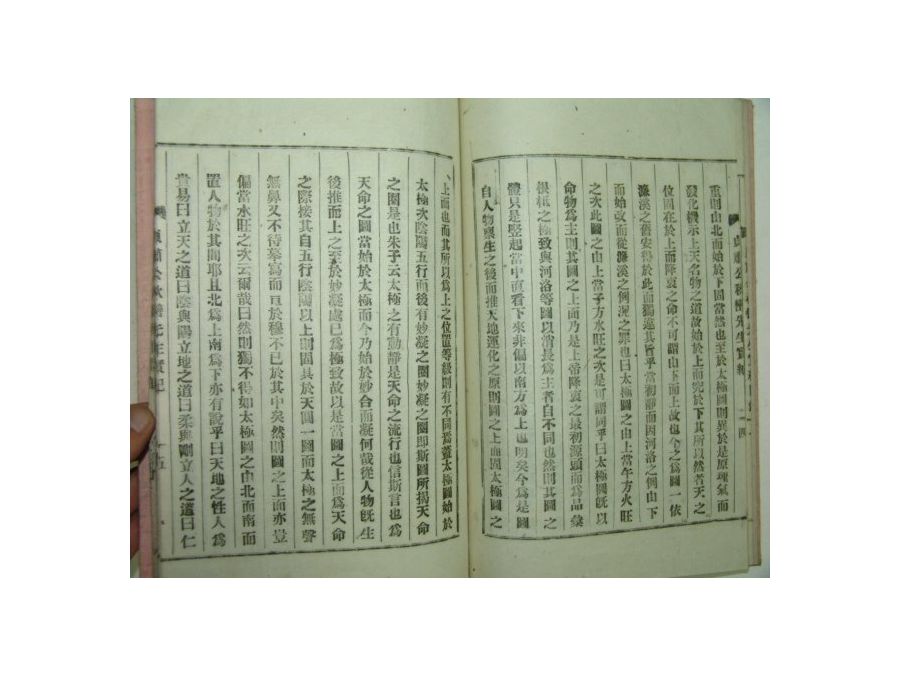 重則由北而始於下固當然也至於太極圖則異於是原理氣而
發化機示上天名物之道故始於上而究於下其所以然者天之
位固在於上而降衷之命不可謂由下而上故也今之爲圖一依
濂溪之舊安得於此而獨違其旨乎當初靜而因河洛之例由下
而始改而從濂溪之例況之罪也曰太極圖之由上當午方火旺
之次此圖之由上當子方水旺之次是可謂同乎曰太極圖旣以
命物爲主則其圖之上面乃是上帝降衷之最初源頭而爲品彙
根柢之極致與河洛等圖以消長爲主者自不同也然則其圖之
體只是竪起當中直看下來非偏以南方爲上也明矣今爲是圖
自人物稟生之後而推天地運化之原則圖之上面固太極圖之
上面也而其所以爲上之位置等級則有不同焉蓋太極圖始於
太極次陰陽五行而後有妙凝之圈妙凝之圈即斯圖所揭天命
之圈是也朱子云太極之有動靜是天命之流行也信斯言也爲
天命之圖當始於太極而今乃始於妙合而凝何哉從人物旣生
後推而上之至於妙凝處已爲極致故以是當圖之上面爲天命
之際接其自五行陰陽以上則固具於天圓一圖而太極之無聲
無臭又不待摹寫而亘於穆不已於其中矣然則圖之上面亦豈
偏當水旺之次云爾哉曰然則獨不得如太極圖之由北而南而
置人物於其間耶且北爲上南爲下亦有說乎曰天地之性人爲
貴易曰立天之道曰陰與陽立地之道曰柔與剛立人之道曰仁